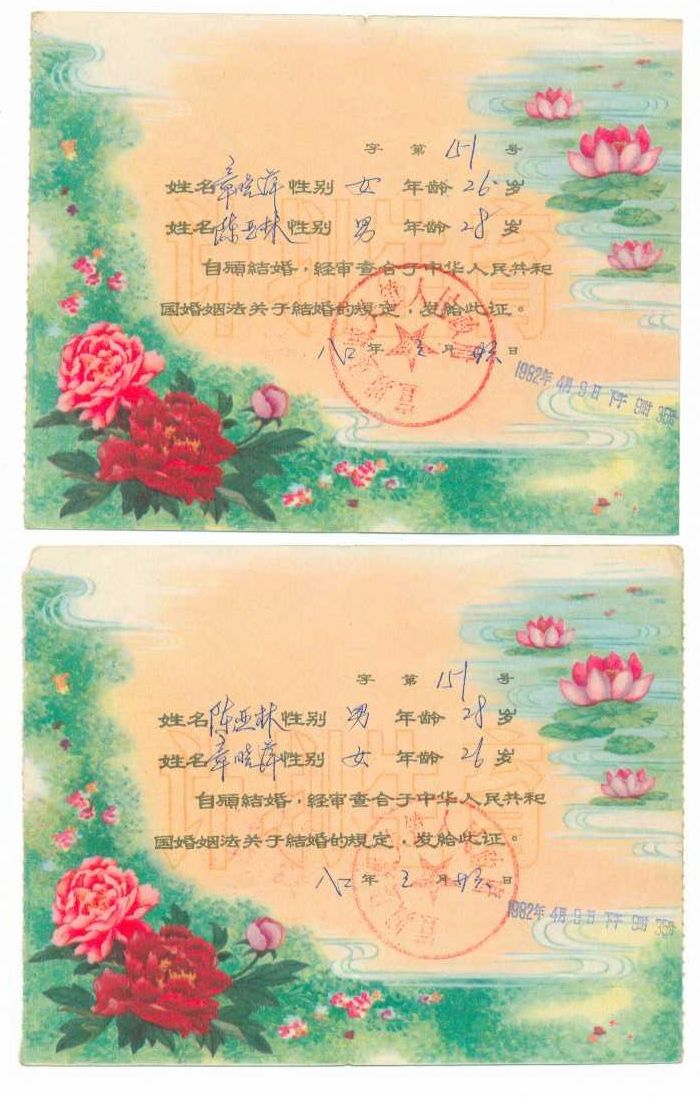 字 第 151 号
姓名章晓萍性别 女 年龄 26 岁
姓名陈亚林性别 男 年龄 28 岁
自願結婚，经审查合于中华人民共和
国婚姻法关于結婚的規定，发給此证。
八二 年 三 月 日
1982年 4月 9日 下午
计划生育
字 第 151 号
姓名陈亚林性别 男 年龄 28 岁
姓名章晓萍性别 女 年龄 26 岁
自願結婚，经审查合于中华人民共和
国婚姻法关于結婚的規定，发給此证。
八二 年 三 月 日
1982年 4月 9日 下午
计划生育